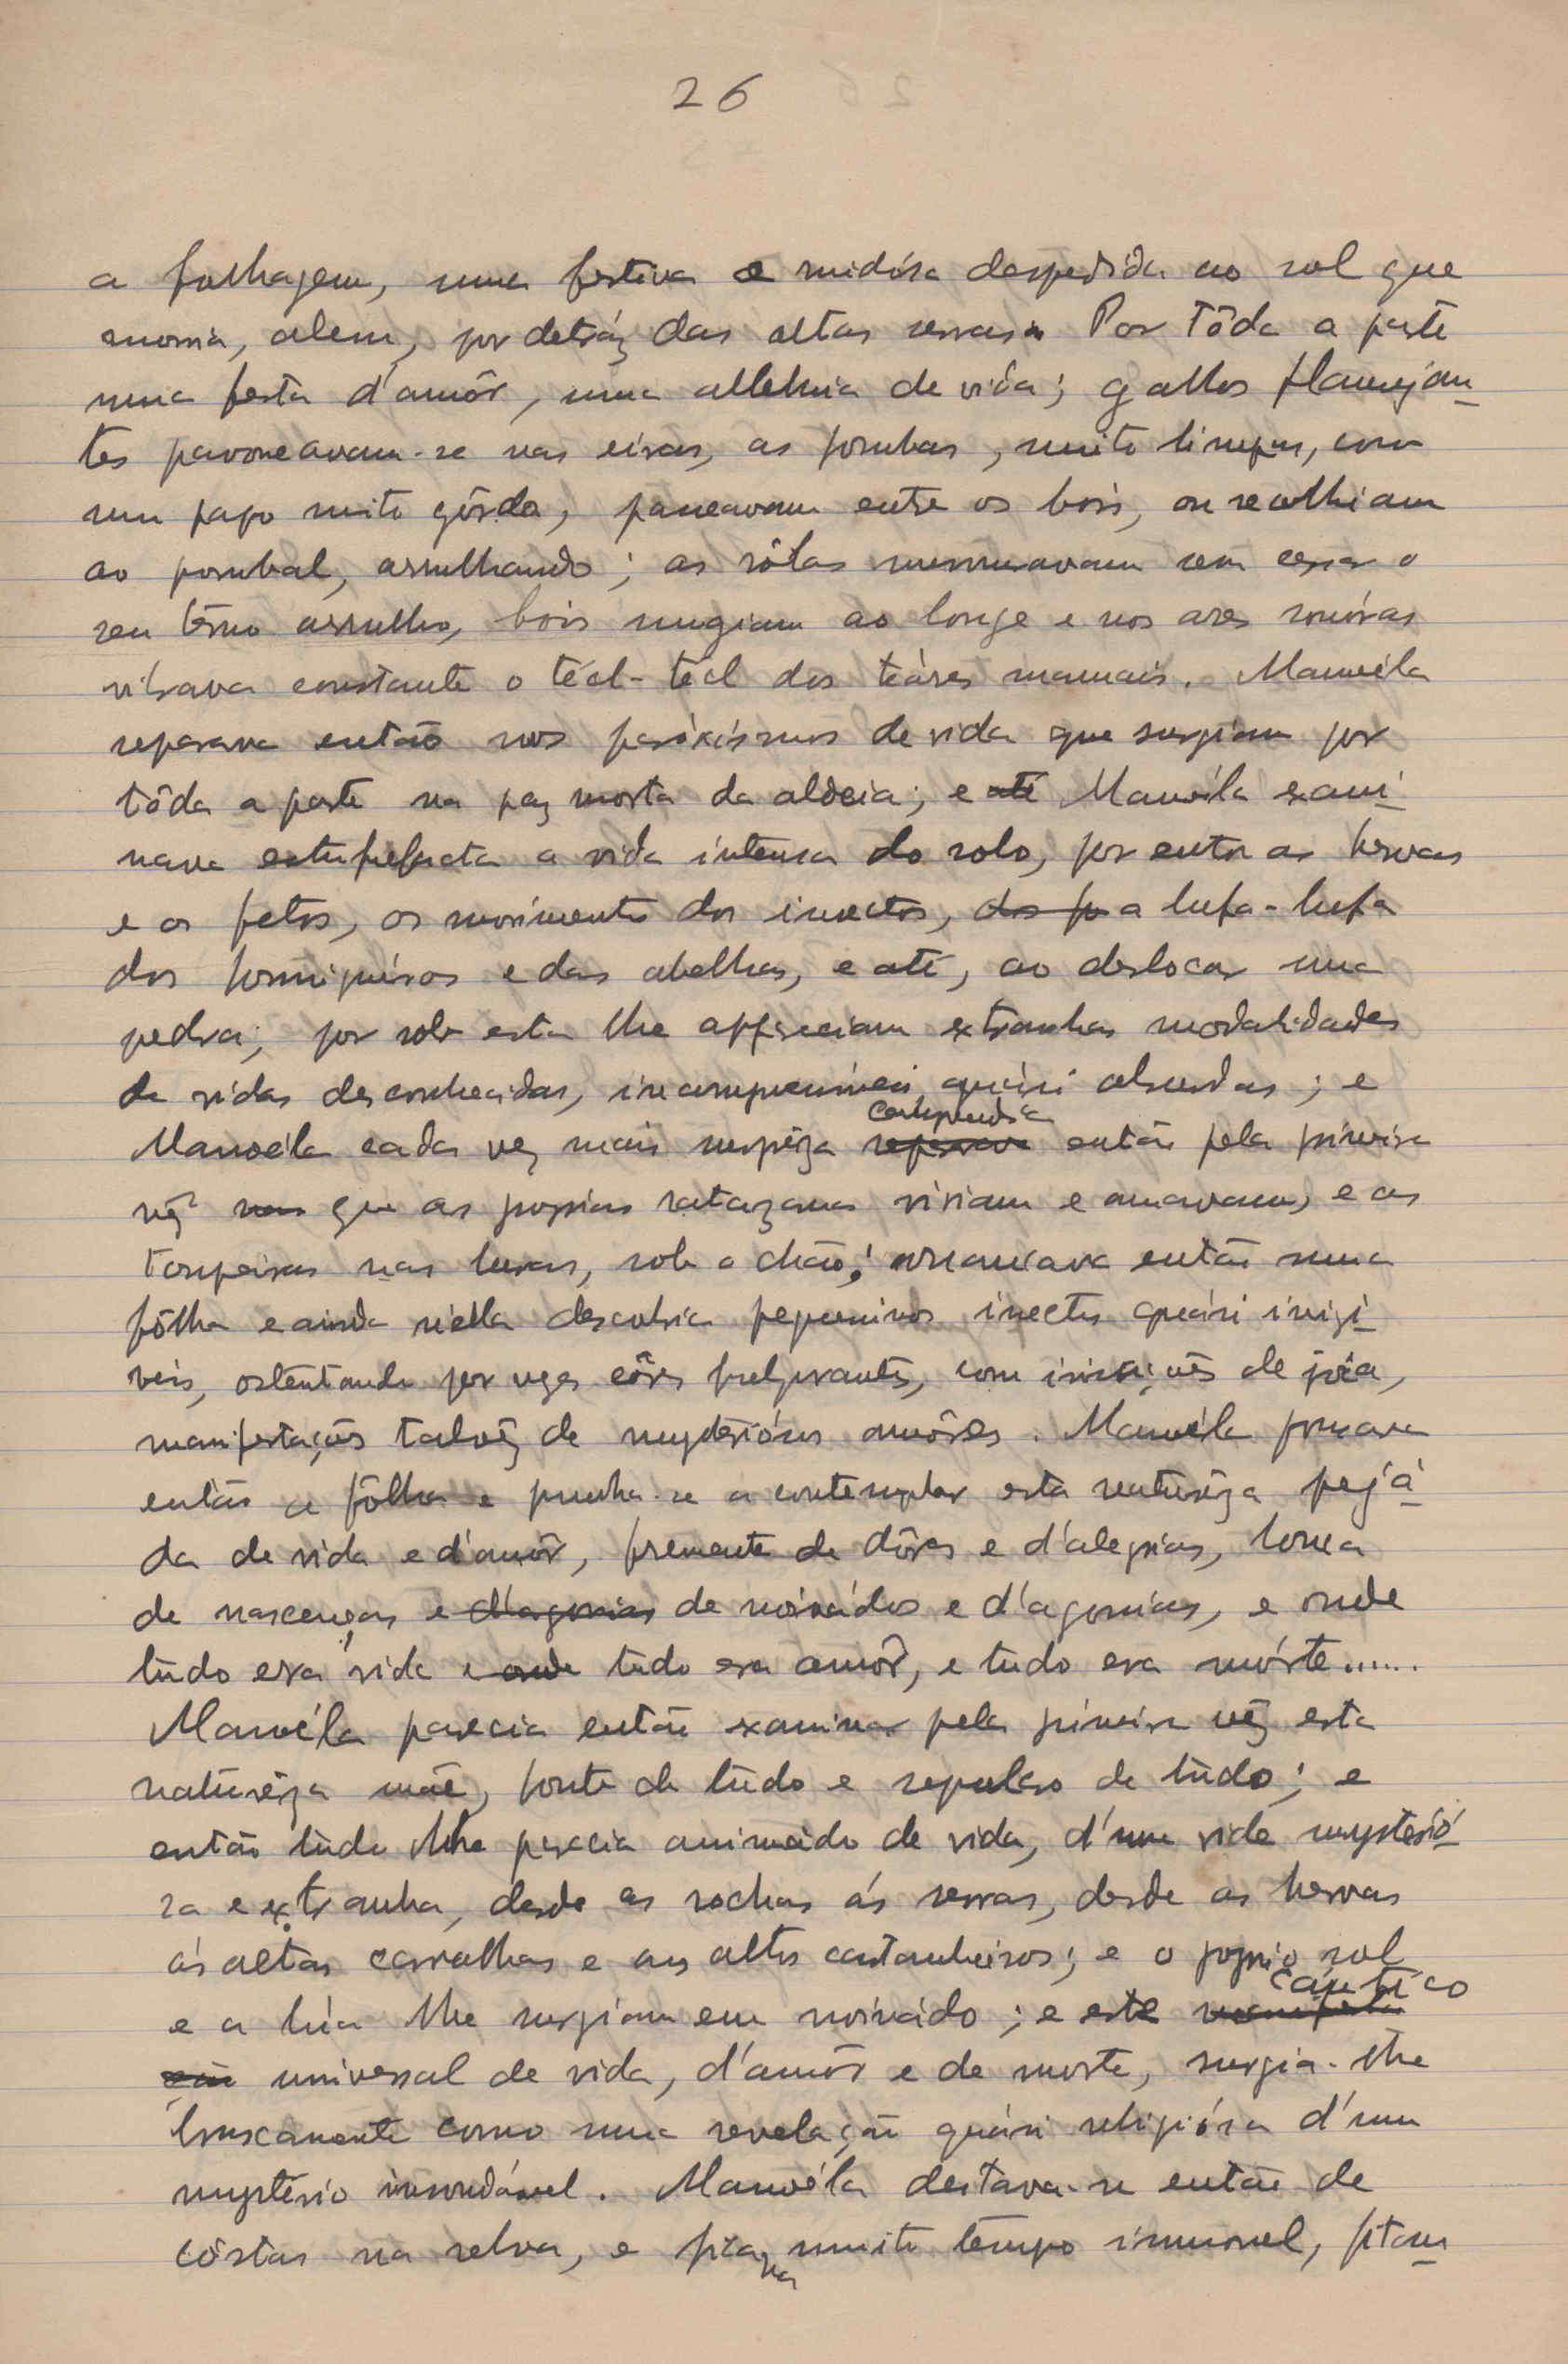 26
a folhagem, uma festiva e ruidósa despedida ao sol que
morria, alem, por detráz das altas serras. Por tôda a parte
uma festa d'amôr, uma alleluia de vida; gallos flamejan-
tes pavoneavam-se nas eiras, as pombas, muito limpas, com
um papo muito górdo, passeavam entre os bois, ou recolhiam
ao pombal, arrulhando; as rôlas murmuravam sem cessar o
seu têrno arrulho, bois mugiam ao longe e nos ares sonóros
vibrava constante o técl-técl dos teáres manuais. Manoéla
reparava então nos paróxismos de vida que surgiam por
tôda a parte na paz morta da aldeia; e até Manoéla exami-
nava estupefacta a vida intensa do solo, por entre as hervas
e os fetos, os movimentos dos insectos, dos fo a lufa-lufa
dos formigueiros e das abelhas, e até, ao deslocar uma
pedra, por sob esta lhe appareciam extranhas modalidades
de vidas desconhecidas, incompreensiveis quási absurdas; e
Manoéla cada vez mais surprêza reparava comprendia então pela primeira
vêz nas que as proprias ratazanas viviam e amavam, e as
toupeiras nas luras, sob o chão; arrancava então uma
fôlha e ainda n'élla descobria pequeninos insectos quási invizi-
veis, ostentando por vezes côres fulgurantes, com irisações de joia,
manifestações talvêz de mysteriósos amôres. Manoéla
então a fôlha e punha-se a contemplar esta naturêza pejá-
da de vida e d'amôr, fremente de dôres e d'alegrias, louca
de nascenças e d'agonias de noivádos e d'agonias, e onde
tudo era vida e onde tudo era amôr, e tudo era mórte......
Manoéla parecia então examinar pela primeira vêz esta
naturêza mãe, fonte de tudo e sepulcro de tudo; e
então tudo lhe parecia animado de vida, d'uma vida mysterió-
sa e extranha, desde as rochas ás serras, desde as hervas
ás altas carvalhas e aos altos castanheiros; e o proprio sol
e a lúa lhe surgiam em noivádo; e este manifesta cântico
ção universal de vida, d'amôr e de morte, surgia-lhe
bruscamente como uma revelação quási religiósa d'um
mystério insondável. Manoéla deitava-se então de
cóstas na relva, e ficava muito tempo immovel, fitan-